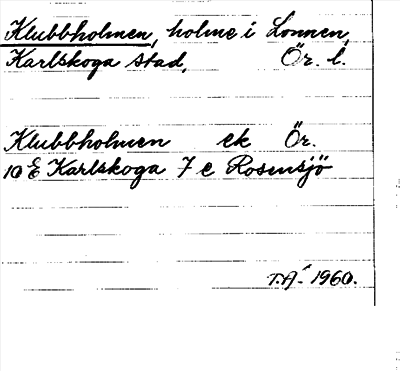 Klubbholmen, holme i Lonnen,
Karlskoga stad, Ör. l.
Klubbholmen ek Ör.
10 E Karlskoga 7 e Rosensjö
T.A. 1960.